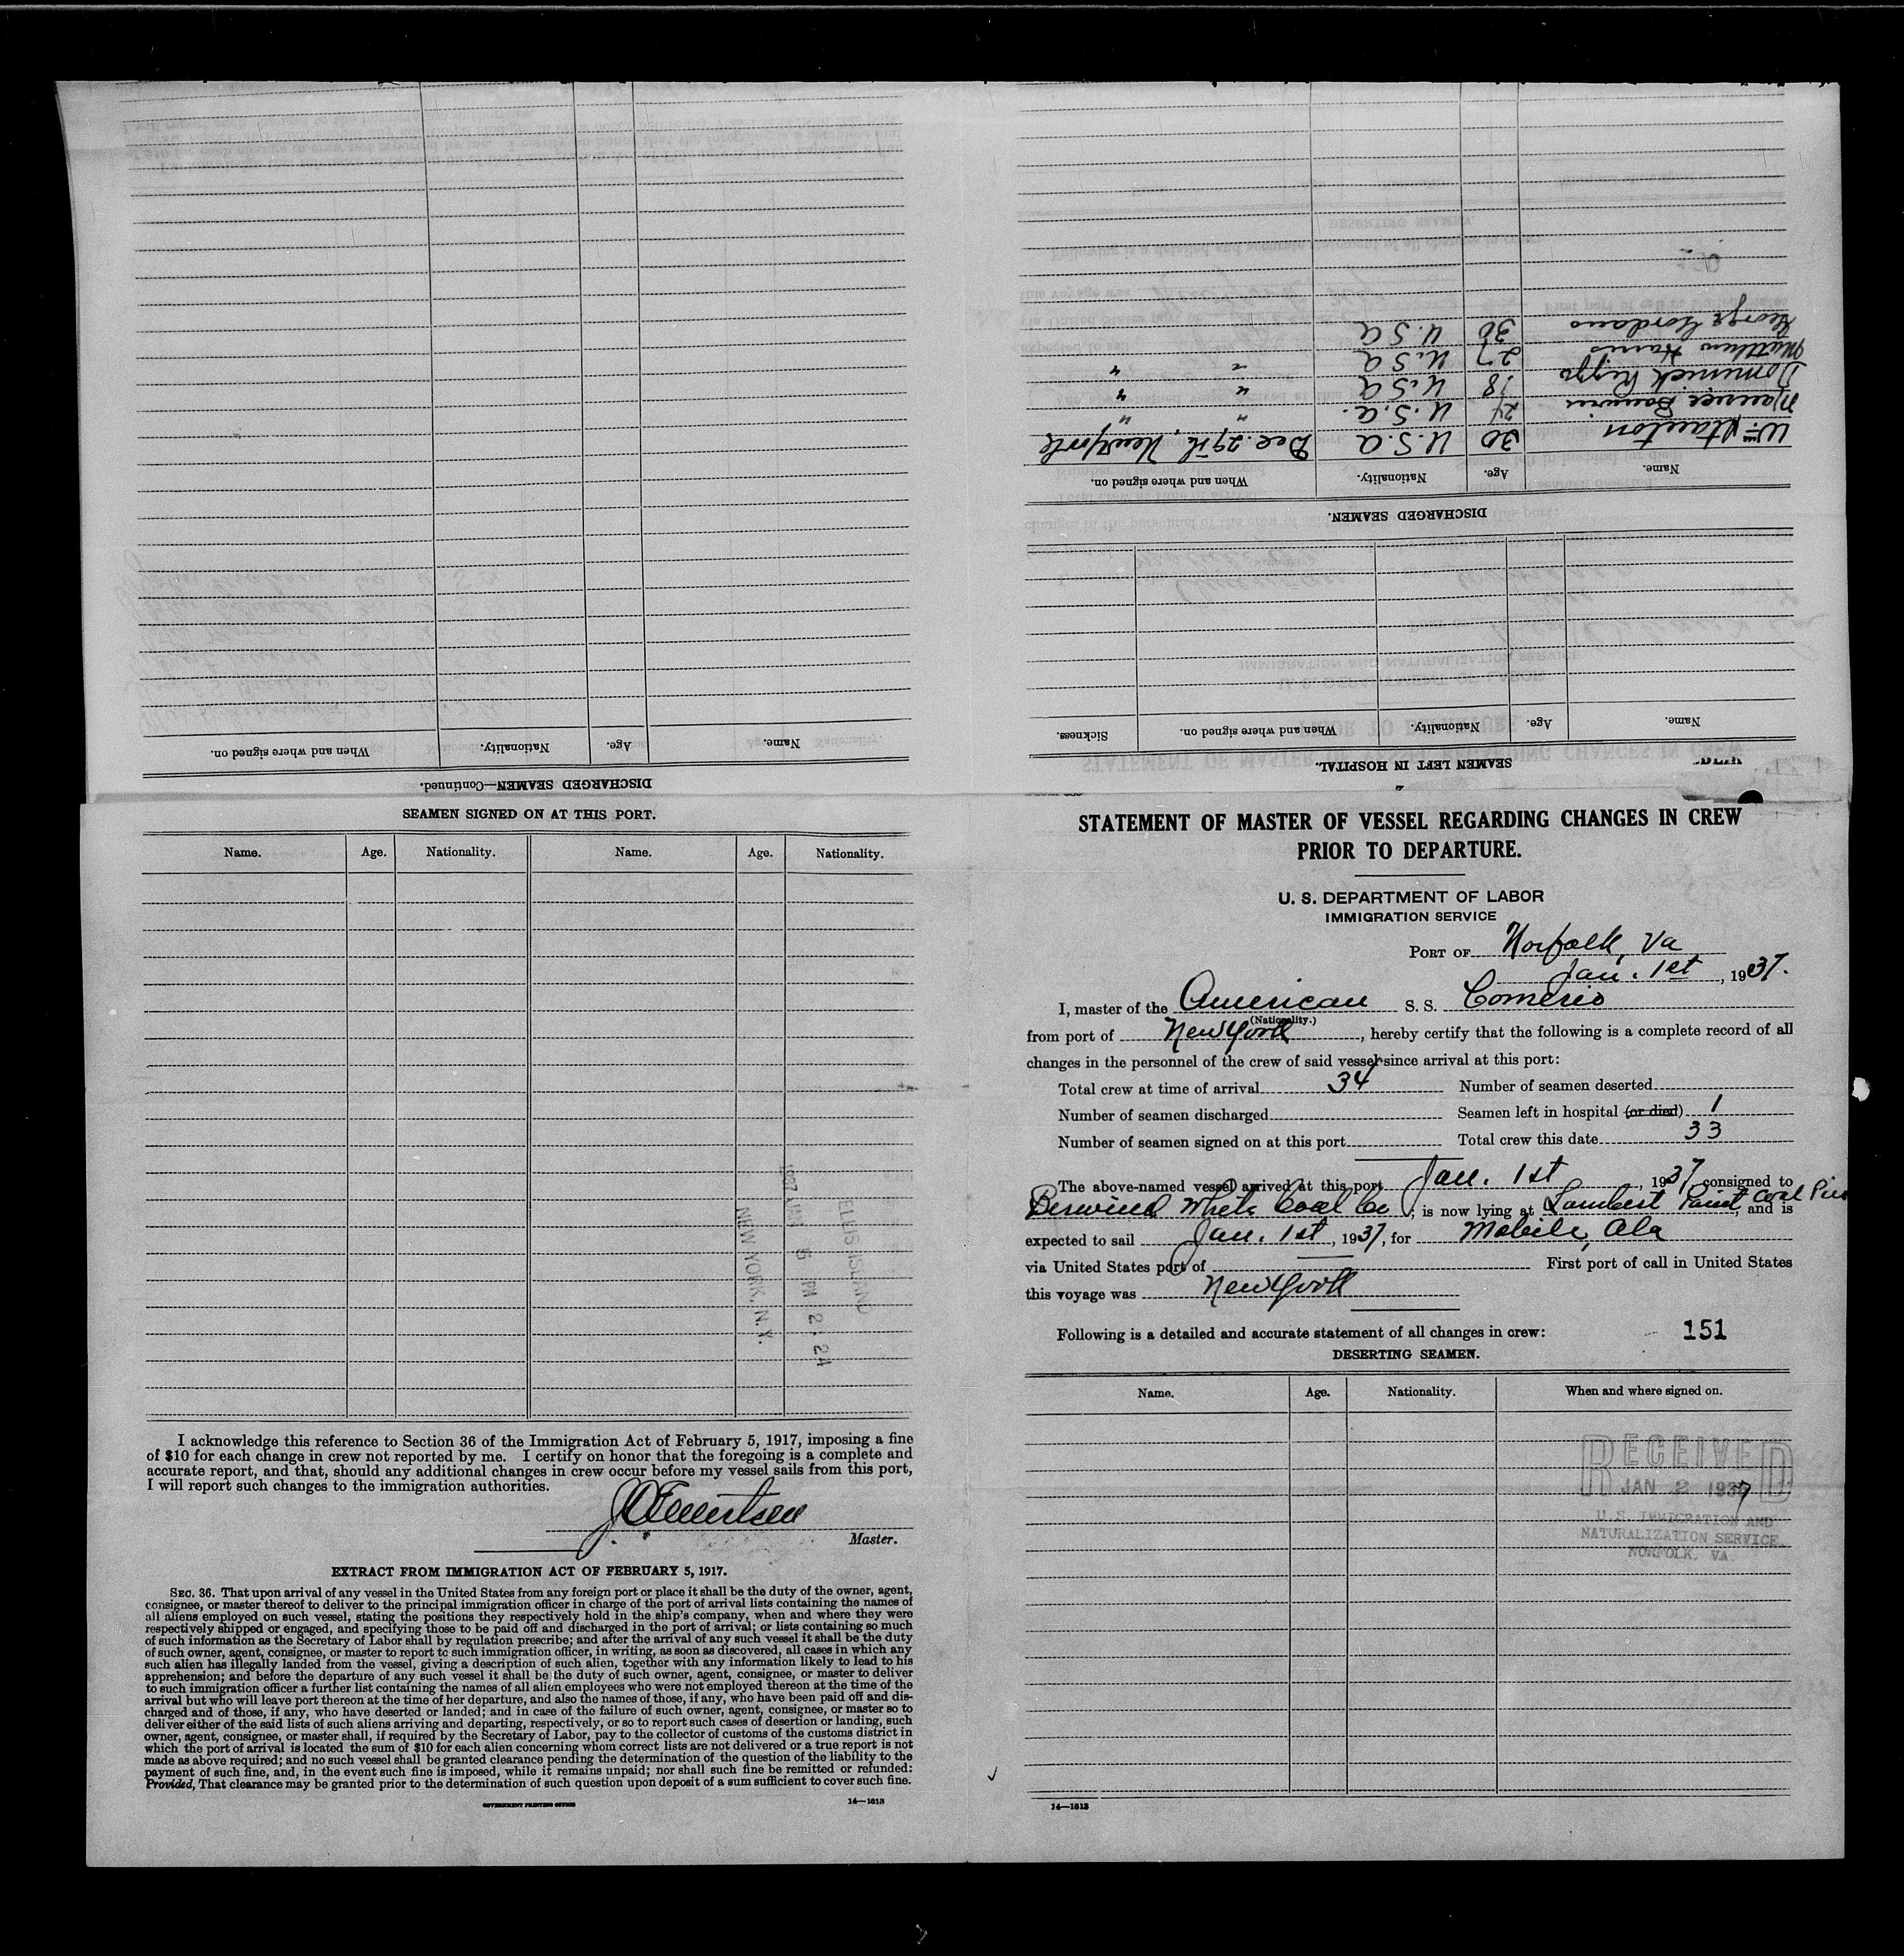 STATEMENT OF MASTER OF VESSEL REGARDING CHANGES IN CREW
PRIOR TO DEPARTURE.
U. S. DEPARTMENT OF LABOR
IMMIGRATION SERVICE
PORT OF Norfolk, Va
Jan. 1st, 1937.
I, master of the American S. S. Comerio
(Nationality.)
from port of New York, hereby certify that the following is a complete record of all
changes in the personnel of the crew of said vessel since arrival at this port:
Total crew at time of arrival 34 Number of seamen deserted
Number of seamen discharged Seamen left in hospital (or died) 1
Number of seamen signed on at this port Total crew this date 33
The above-named vessel arrived at this port Jan. 1st, 1937, consigned to
Berwind White Coal Co, is now lying at Lambert Point Coal Pier, and is
expected to sail Jan. 1st, 1937, for Mobile, Ala
via United States port of First port of call in United States
this voyage was New York
Following is a detailed and accurate statement of all changes in crew: 151
DESERTING SEAMEN.
Name. Age. Nationality. When and where signed on.
RECEIVED
JAN 2 1937
U. S. IMMIGRATION AND
NATURALIZATION SERVICE,
NORFOLK, VA.
14—1613
SEAMEN LEFT IN HOSPITAL.
Name. Age. Nationality. When and where signed on. Sickness.
DISCHARGED SEAMEN.
Name. Age. Nationality. When and where signed on.
Wm Stanton 30 U.S.A Dec. 29th, New York
Maurice 24 U.S.A. " "
Dominick Rizzo 18 U.S.A " "
Matthew Harris 27 U.S.A " "
George Gordano 30 U.S.A
DISCHARGED SEAMEN—Continued.
Name. Age. Nationality. When and where signed on.
SEAMEN SIGNED ON AT THIS PORT.
Name. Age. Nationality. Name. Age. Nationality.
ELLIS ISLAND
1937 JAN 5 PM 2 24
NEW YORK, N.Y.
I acknowledge this reference to Section 36 of the Immigration Act of February 5, 1917, imposing a fine
of $10 for each change in crew not reported by me. I certify on honor that the foregoing is a complete and
accurate report, and that, should any additional changes in crew occur before my vessel sails from this port,
I will report such changes to the immigration authorities.
Master.
EXTRACT FROM IMMIGRATION ACT OF FEBRUARY 5, 1917.
SEC. 36. That upon arrival of any vessel in the United States from any foreign port or place it shall be the duty of the owner, agent,
consignee, or master thereof to deliver to the principal immigration officer in charge of the port of arrival lists containing the names of
all aliens employed on such vessel, stating the positions they respectively hold in the ship's company, when and where they were
respectively shipped or engaged, and specifying those to be paid off and discharged in the port of arrival; or lists containing so much
of such information as the Secretary of Labor shall by regulation prescribe; and after the arrival of any such vessel it shall be the duty
of such owner, agent, consignee, or master to report to such immigration officer, in writing, as soon as discovered, all cases in which any
such alien has illegally landed from the vessel, giving a description of such alien, together with any information likely to lead to his
apprehension; and before the departure of any such vessel it shall be the duty of such owner, agent, consignee, or master to deliver
to such immigration officer a further list containing the names of all alien employees who were not employed thereon at the time of the
arrival but who will leave port thereon at the time of her departure, and also the names of those, if any, who have been paid off and dis-
charged and of those, if any, who have deserted or landed; and in case of the failure of such owner, agent, consignee, or master so to
deliver either of the said lists of such aliens arriving and departing, respectively, or so to report such cases of desertion or landing, such
owner, agent, consignee, or master shall, if required by the Secretary of Labor, pay to the collector of customs of the customs district in
which the port of arrival is located the sum of $10 for each alien concerning whom correct lists are not delivered or a true report is not
made as above required; and no such vessel shall be granted clearance pending the determination of the question of the liability to the
payment of such fine, and, in the event such fine is imposed, while it remains unpaid; nor shall such fine be remitted or refunded:
Provided, That clearance may be granted prior to the determination of such question upon deposit of a sum sufficient to cover such fine.
GOVERNMENT PRINTING OFFICE 14—1613